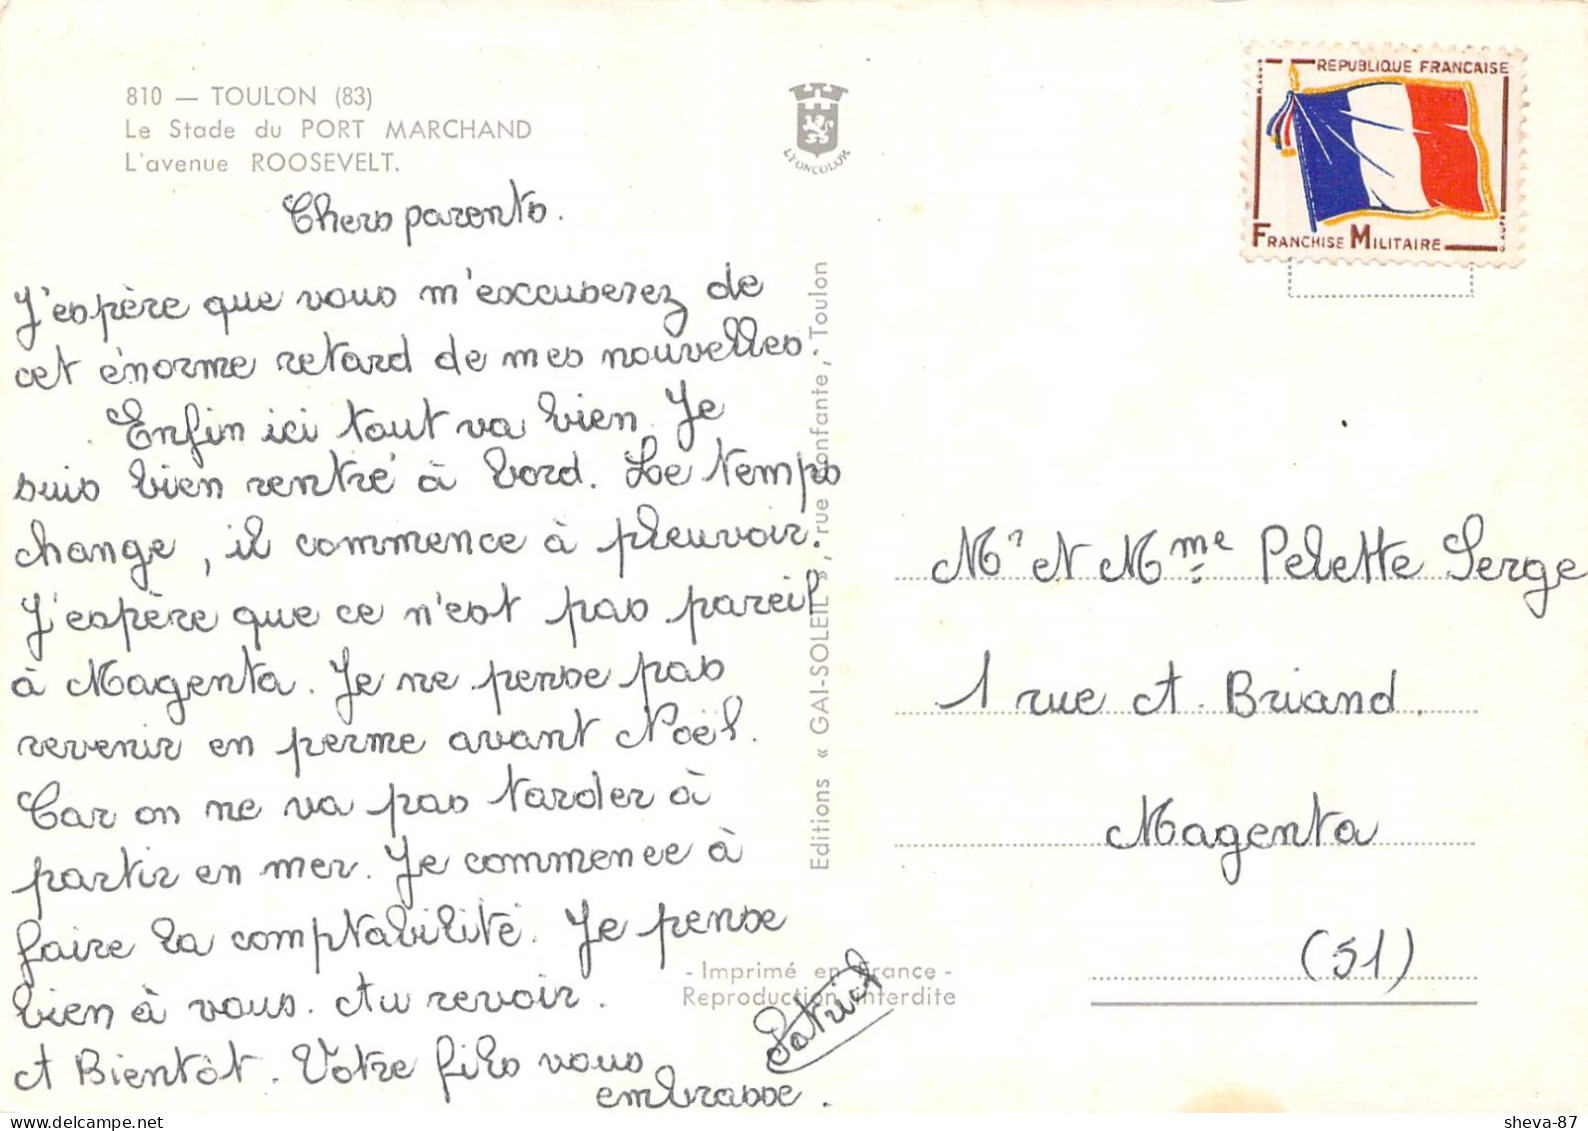 810 — TOULON (83)
Le Stade du PORT MARCHAND
L'avenue ROOSEVELT.
LYONCOLOR
REPUBLIQUE FRANCAISE
FRANCHISE MILITAIRE
Chers parents.
J'espère que vous m'excuserez de
cet énorme retard de mes nouvelles.
Enfin ici tout va bien. Je
suis bien rentré à bord. Le temps
change, il commence à pleuvoir.
J'espère que ce n'est pas pareil
à Magenta. Je ne pense pas
revenir en perme avant Noël.
Car on ne va pas tarder à
partir en mer. Je commence à
faire la comptabilité. Je pense
bien à vous. Au revoir.
A Bientôt. Votre fils vous
embrasse.
Patrick
Editions « GAI-SOLEIL », rue Bonfante, Toulon
- Imprimé en France -
Reproduction interdite
Mr et Mme Pelette Serge
1 rue A. Briand.
Magenta
(51)
sheva-87